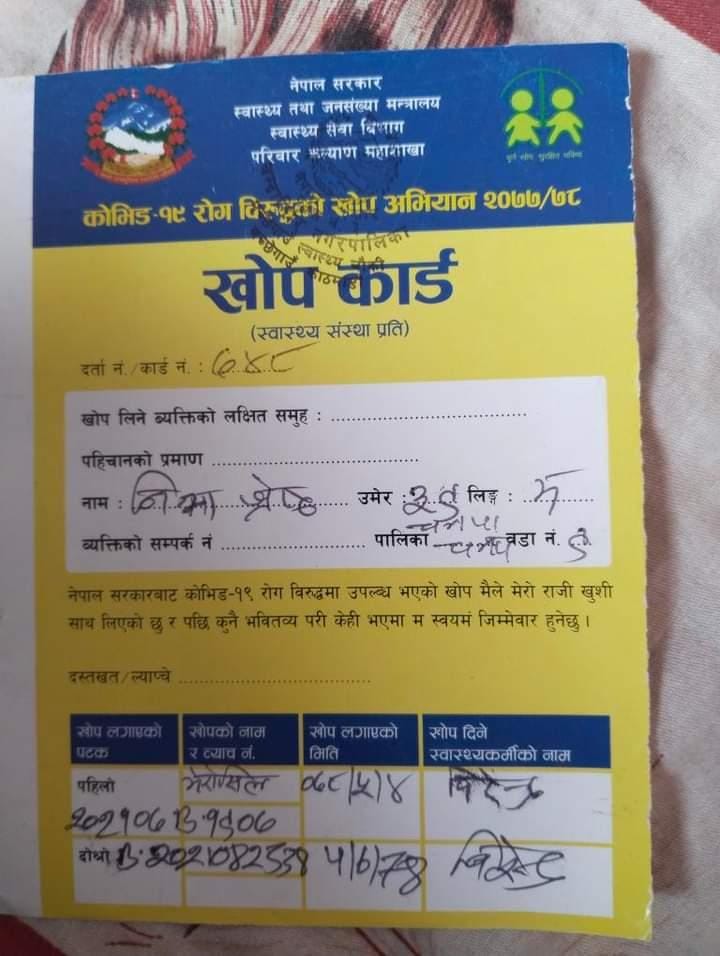 नेपाल सरकार
स्वास्थ्य तथा जनसंख्या मन्त्रालय
स्वास्थ्य सेवा विभाग
परिवार कल्याण महाशाखा
पूर्ण खोप, सुरक्षित भविष्य
कोभिड-१९ रोग विरुद्धको खोप अभियान २०७७/७८
नगरपालिका
स्वास्थ्य चौकी
काठमाडौं
खोप कार्ड
(स्वास्थ्य संस्था प्रति)
दर्ता नं./कार्ड नं. : ७४८
खोप लिने व्यक्तिको लक्षित समुह :
पहिचानको प्रमाण
नाम : निमा श्रेष्ठ उमेर : लिङ्ग : म
व्यक्तिको सम्पर्क नं पालिका वडा नं.
नेपाल सरकारबाट कोभिड-१९ रोग विरुद्धमा उपल्व्ध भएको खोप मैले मेरो राजी खुशी
साथ लिएको छु र पछि कुनै भवितव्य परी केही भएमा म स्वयमं जिम्मेवार हुनेछु ।
दस्तखत/ल्याप्चे
खोप लगाएको पटक खोपको नाम र व्याच नं. खोप लगाएको मिति खोप दिने स्वास्थ्यकर्मीको नाम
पहिलो भेरोसिल ०७८/५/४ विरेन्द्र
दोश्रो विरेन्द्र